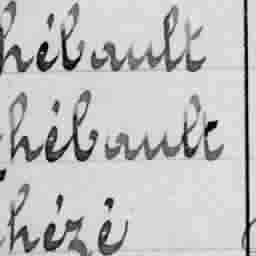 hébault
hébault
hézé